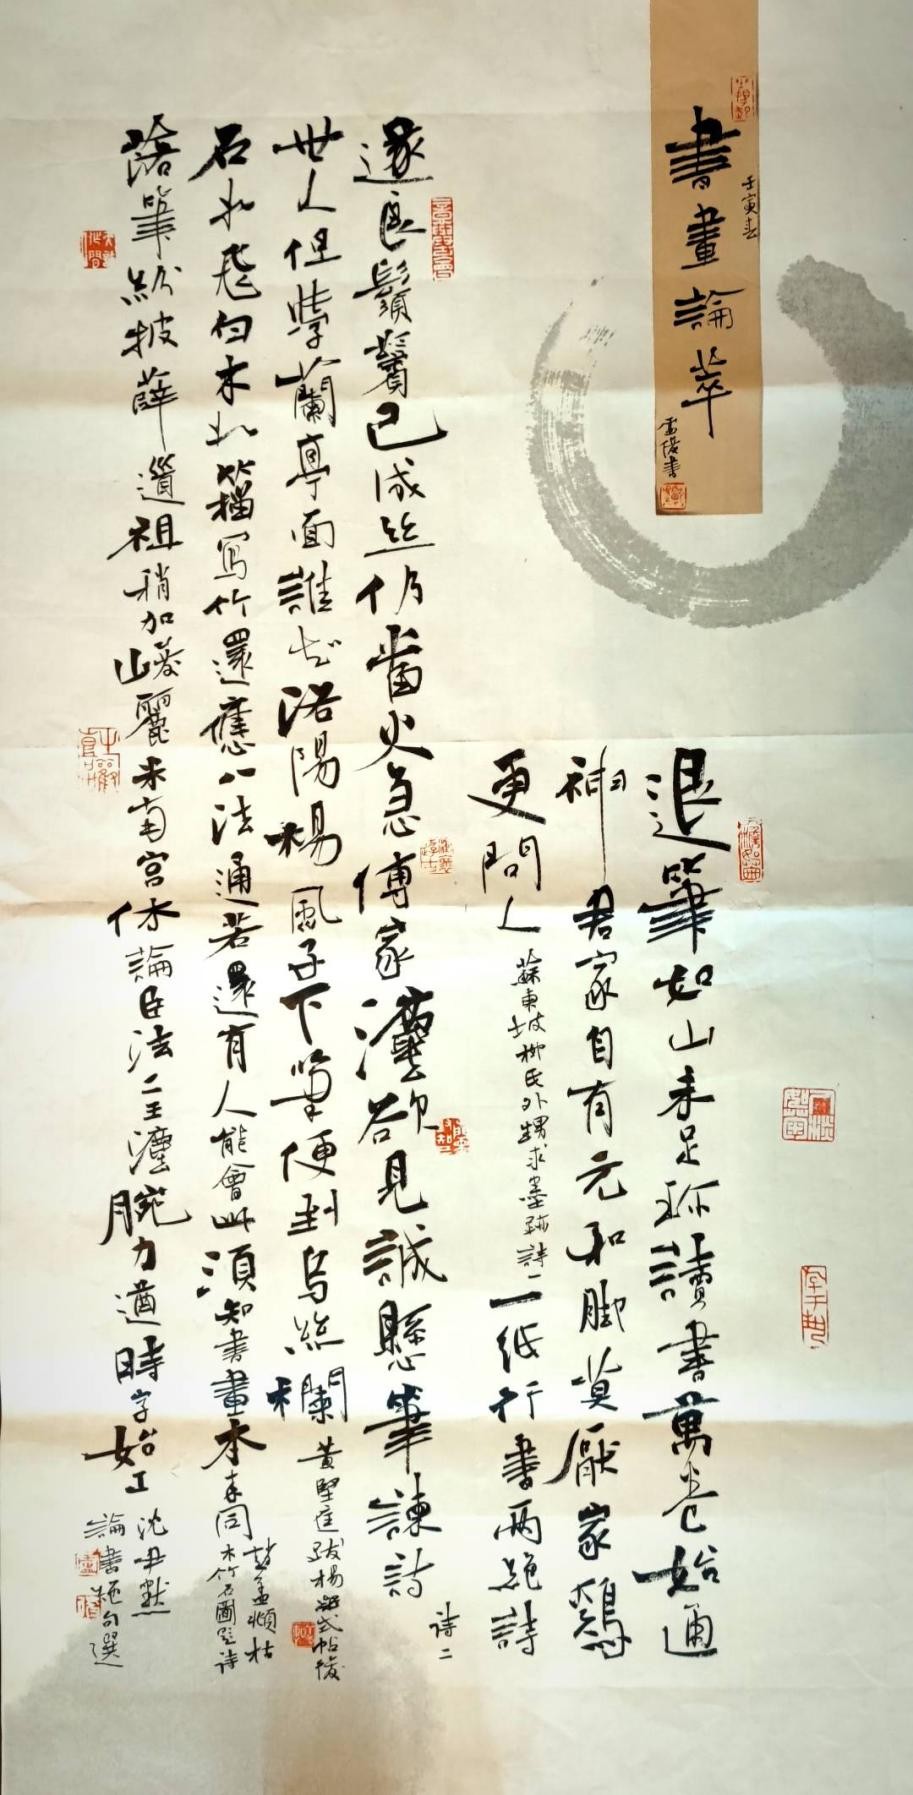 壬寅春
書畫論萃
退筆如山未足珎讀書萬卷始通
神君家自有元和脚莫厭家鷄
更問人 蘇東坡柳氏外甥求墨跡詩二 一紙行書兩絶詩
遂良鬚鬢已成絲仍當火急傳家灋欲見誠懸筆諫詩 詩二
世人但學蘭亭面誰知洛陽楊風子下筆便到烏絲欄 黄堅庭跋楊凝式帖後
石如飛白木如籀寫竹還應八法通若還有人能會此須知書畫本来同 趙孟頫枯
木竹石圖題詩
落筆紛披薛道祖稍加峻麗米南宮休論臣法二王灋腕力遒時字始工 沈尹默
論書絶句選